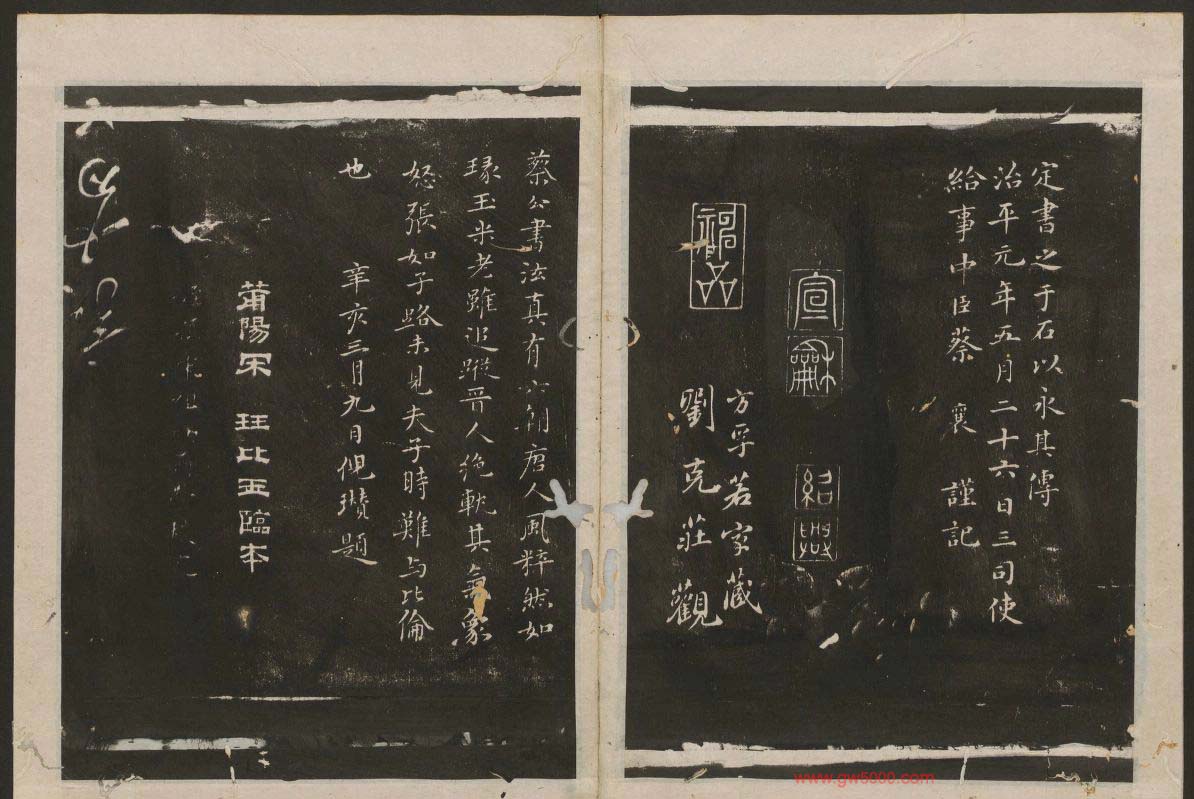 定書之于石以永其傳
治平元年五月二十六日三司使
給事中臣蔡襄謹記
宣
龢
紹興
神品
方孚若家藏
劉克莊觀
蔡公書法真有六朝唐人風粹然如
琢玉米老雖追蹤晉人絶軌其氣象
怒張如子路未見夫子時難与比倫
也
辛亥三月九日倪瓚題
莆陽宋珏比玉臨本
www.gw5000.com